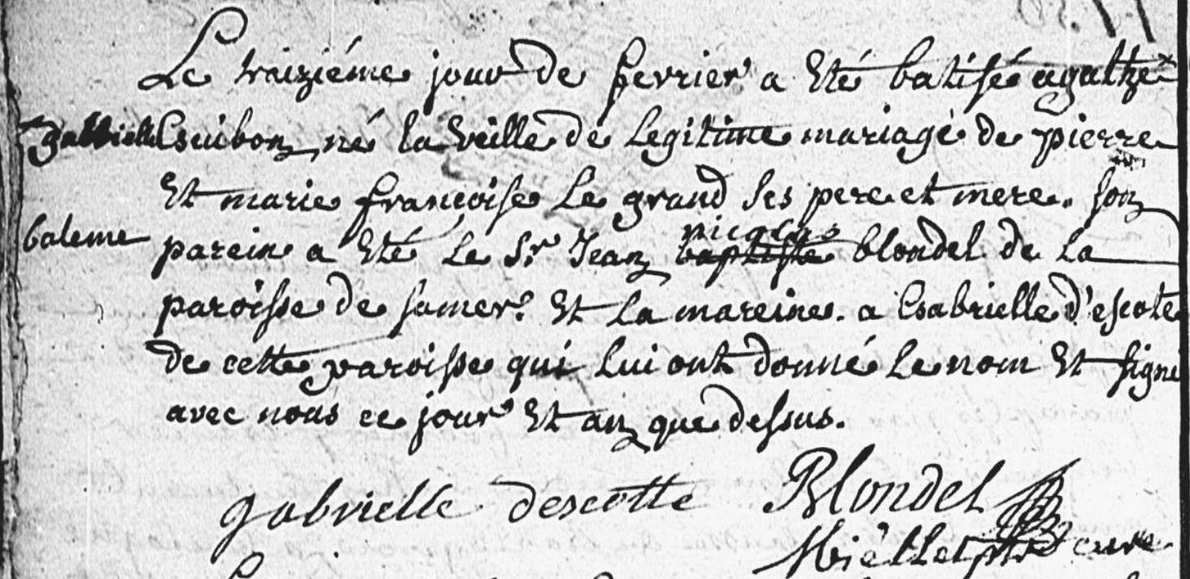 Le traiziéme jour de fevrier a eté batisé agathe
gabrielle né la veille de legitime mariage de pierre
Et marie françoise le grand ses pere et mere. son
nicolas
bateme parein a eté le Sr. Jean baptiste blondel de la
paroisse de samer. Et la mareine. a Gabrielle d'escote
de cette paroisse qui lui ont donné le nom Et signé
avec nous ce jour Et an que dessus.
gabrielle descotte Blondel
curé